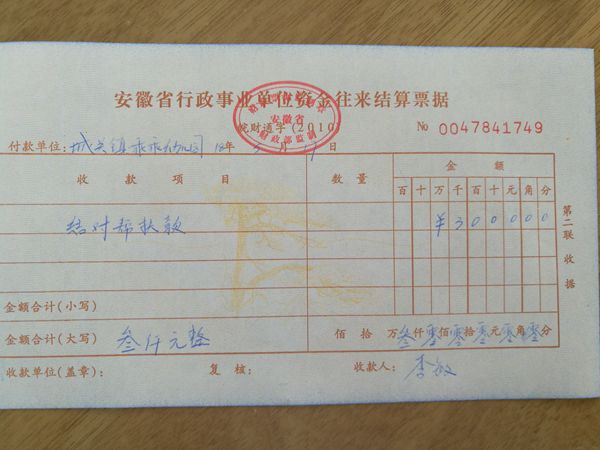 安徽省行政事业单位资金往来结算票据
安徽省
财政部监制
皖财通字(2010)
No 0047841749
付款单位: 城关镇 幼儿园 18年 月 日
收款项目 数量 金额
百十万千百十元角分
结对帮扶款 ¥300000
第二联 收据
金额合计(小写)
金额合计(大写) 叁仟元整 佰 拾 万叁仟零佰零拾零元零角零分
收款单位(盖章): 复核: 收款人: 李敏